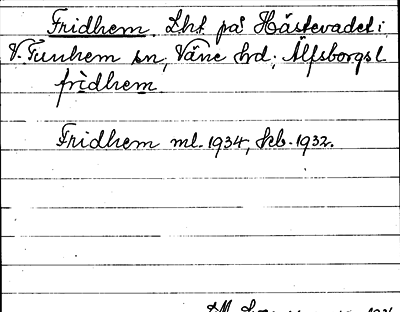 Fridhem. Lht på Hästevadet i
V. Tunhem sn, Väne hd; Älfsborgs l.
frìdhem
Fridhem ml. 1934, kb. 1932.